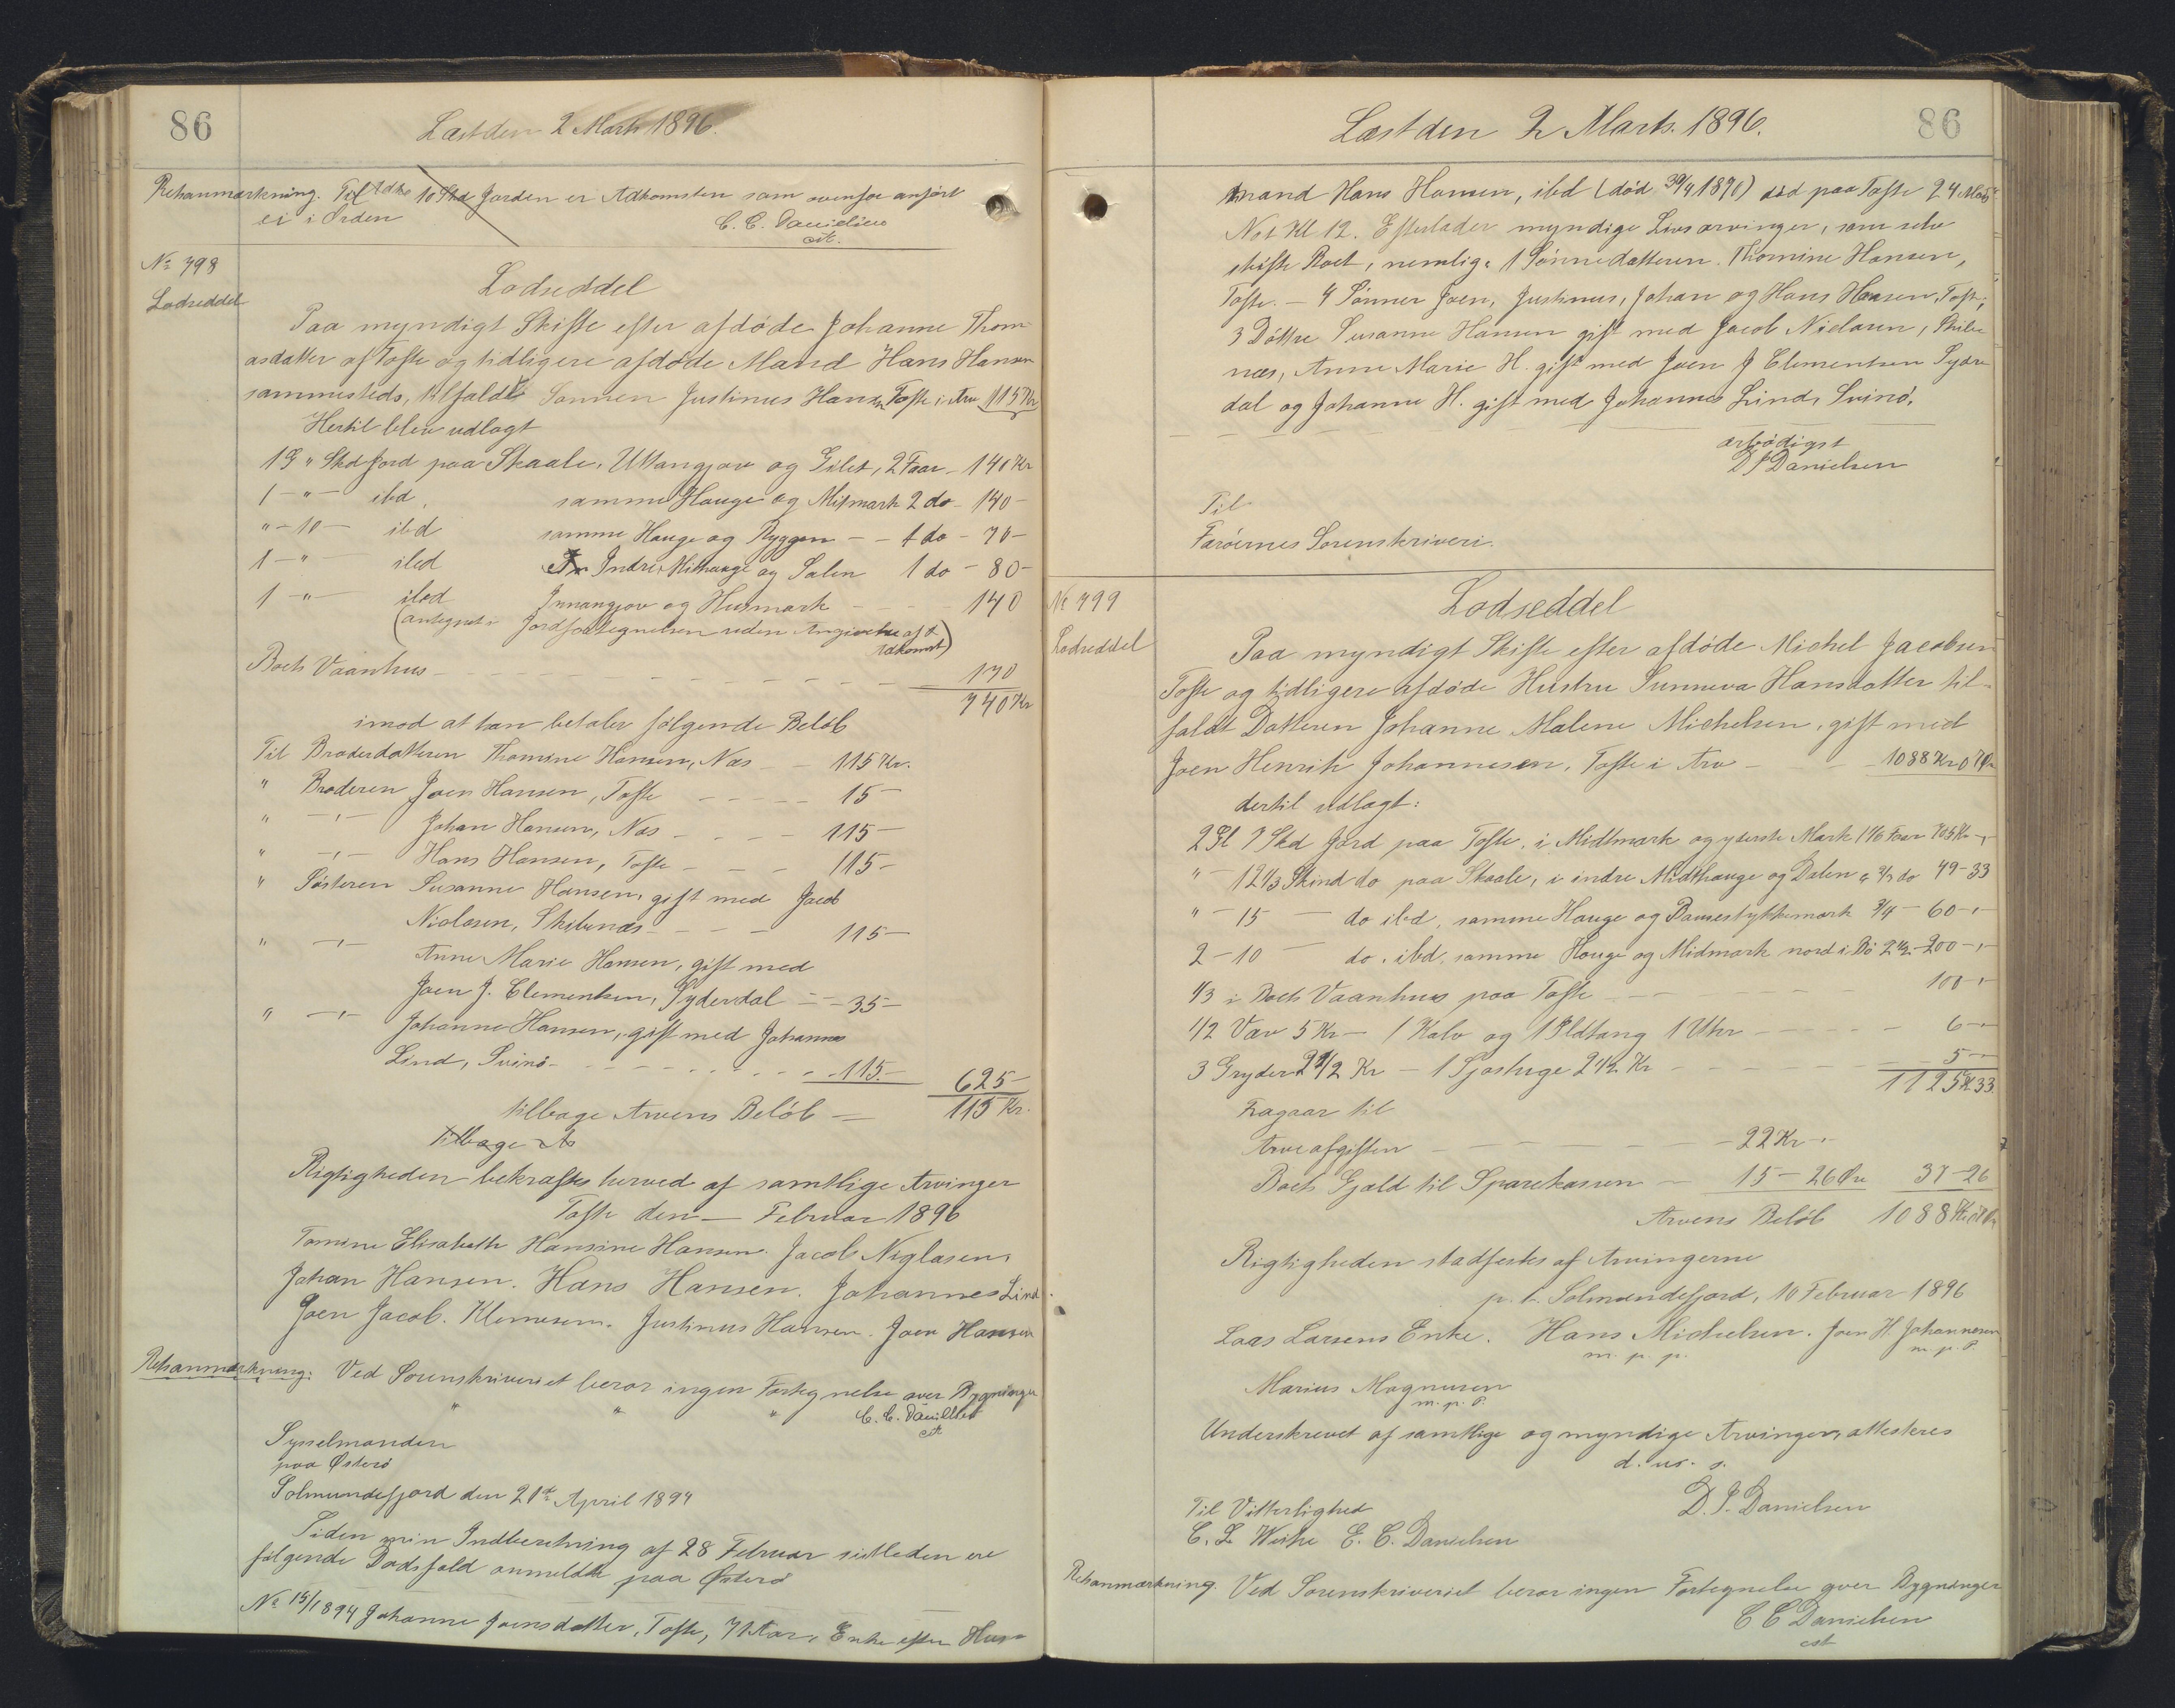 86
Læst den 2 Marts 1896.
Retsanmærkning. Til Adk 10 Skd Jorden er Adkomsten som ovenfor anført
ei i Orden
C. C. Danielsen
cst.
No 798
Lodseddel
Lodseddel
Paa myndigt Skifte efter afdøde Johanne Thom
asdatter af Tofte og tidligere afdøde Mand Hans Hansen
sammesteds, tilfaldt Sønnen Justinus Hansen Tofte i Arv 115 Kr
Hertil blev udlagt
1 G " Skd Jord paa Skaale, Uttangjov og Gilet, 2 Faar - 140 Kr
1 - " - ibd, samme Hauge og Mitmark 2 do - 140 -
" - 10 - ibd samme Hauge og Ryggen - - 1 do - 70 -
1 - " ibd Indre Mithauge og Dalen 1 do - 80 -
1 - " ibd Innangjov og Husmark - - - 140
(antegnet i Jordfortegnelsen uden Angivelse af
Adkomst)
Boets Vaanhus - - - 170
740 Kr
imod at han betaler følgende Beløb
Til Broderdatteren Thomine Hansen, Næs - - 115 Kr.
" Broderen Joen Hansen, Tofte - - - - 15 -
" -"- Johan Hansen, Næs - - - - 115 -
" -"- Hans Hansen, Tofte - - - 115 -
" Søsteren Susanne Hansen, gift med Jacob
Niclasen, Skibenæs - - - - 115 -
" -"- Anne Marie Hansen, gift med
Joen J. Clementsen, Syderdal - - 35 -
" -"- Johanne Hansen, gift med Johannes
Lind, Svinø - - - - 115 - 625 -
tilbage Arvens Beløb - 115 Kr.
Tilbage A
Rigtigheden bekræftes herved af samtlige Arvinger
Tofte den — Februar 1896
Tomine Elisabeth Hansine Hansen. Jacob Niglasen.
Johan Hansen. Hans Hansen. Johannes Lind.
Joen Jacob. Klemesen. Justinus Hansen. Joen Hansen
Retsanmærkning: Ved Sorenskriveriet beror ingen Fortegnelse over Bygninger
C. C. Danielsen
cst
Sysselmanden
paa Østerø
Solmundefjord den 21de April 1894
Siden min Indberetning af 28 Februar sidstleden ere
følgende Dødsfald anmeldte paa Østerø
No 15/1894 Johanne Joensdatter, Tofte, 71 Aar, Enke efter Hus-
86
Læst den 2 Marts. 1896.
mand Hans Hansen, ibd (død 30/4 1890) død paa Tofte 24 Marts
Nat Kl 12. Efterlader myndige Livsarvinger, som selv
skifte Boet, nemlig: 1 Sønnedatteren Thomine Hansen,
Tofte. - 4 Sønner Joen, Justinus, Johan og Hans Hansen, Tofte;
3 Døttre Susanne Hansen gift med Jacob Niclasen, Skibe
næs, Anne Marie H. gift med Joen J Clementsen Sydra
dal og Johanne H. gift med Johannes Lind, Svinø.
ærbødigst
D J Danielsen
Til
Færøernes Sorenskriveri.
No 799
Lodseddel
Lodseddel
Paa myndigt Skifte efter afdøde Michel Jacobsen
Tofte og tidligere afdøde Hustru Sunneva Hansdatter til-
faldt Datteren Johanne Malene Michelsen, gift med
Joen Henrik Johannesen, Tofte i Arv - - - 1088 Kr 07 Øre
dertil udlagt:
2 Gl 7 Skd Jord paa Tofte, i Midtmark og yderste Mark 1 1/6 Faar 705 Kr - "
" - 12 1/3 Skind do paa Skaale, i indre Midthauge og Dalen " 2/3 do 49 - 33
" - 15 - do ibd, samme Hauge og Bamestykkemark 3/4 - 60 - "
2 - 10 - do. ibd. samme Hauge og Midmark nord i Bø 2 1/2 - 200 - "
1/3 i Boets Vaanhus paa Tofte - - - 100 - "
1/2 Væv 5 Kr - 1 Kalv og 1 Ildtang 1 Uhr - - - 6 - "
3 Gryder 2 1/2 Kr - 1 Sjostuge 2 1/2 Kr - - - 5 - "
1125 Kr 33
Fragaar til
Arveafgiften - - - 22 Kr - "
Boets Gjæld til Sparekassen - 15 - 26 Øre 37 - 26
Arvens Beløb 1088 Kr 07 Øre
Rigtigheden stadfestes af Arvingerne
p. t. Solmundefjord, 10 Februar 1896
Laas Larsens Enke. Hans Michelsen. Joen H. Johannesen
m. p. p. m. p. P.
Marius Magnusen
m. p. P.
Underskrevet af samtlige og myndige Arvinger, attesteres
d. u. s.
D. J. Danielsen
Til Vitterlighed
C. L. Weihe E. C. Danielsen
Retsanmærkning. Ved Sorenskriveriet beror ingen Fortegnelse over Bygninger
C C Danielsen
cst